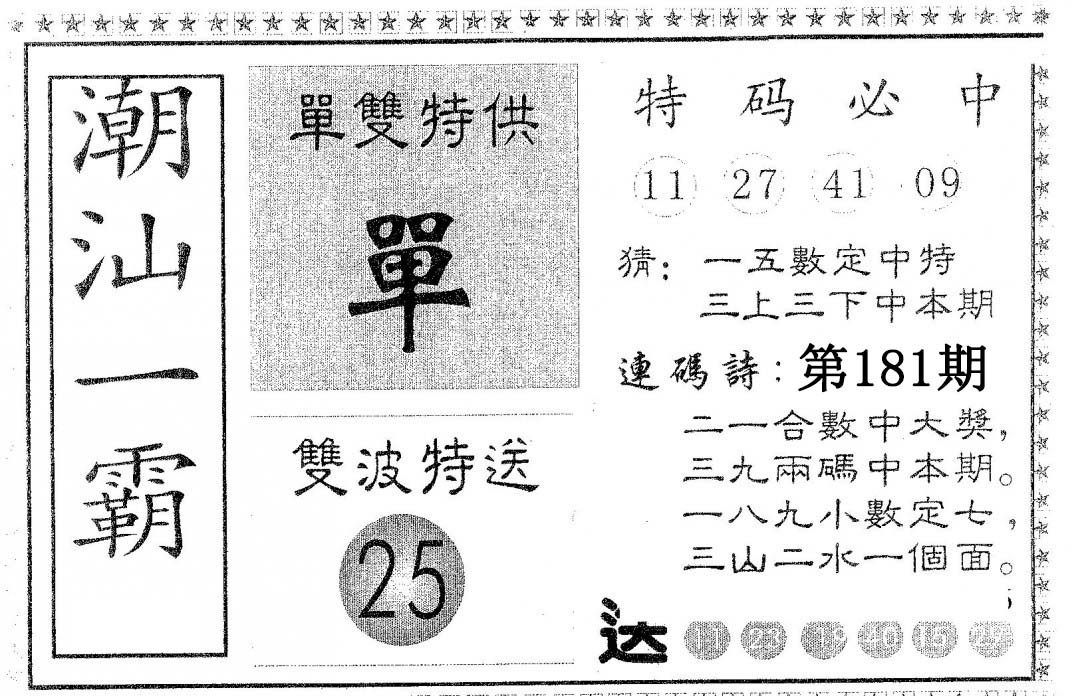 潮汕一霸
單雙特供
單
雙波特送
25
特码必中
11 27 41 09
猜：一五數定中特
三上三下中本期
連碼詩：第181期
二一合數中大獎，
三九兩碼中本期。
一八九小數定七，
三山二水一個面。
达 11 23 19 40 15